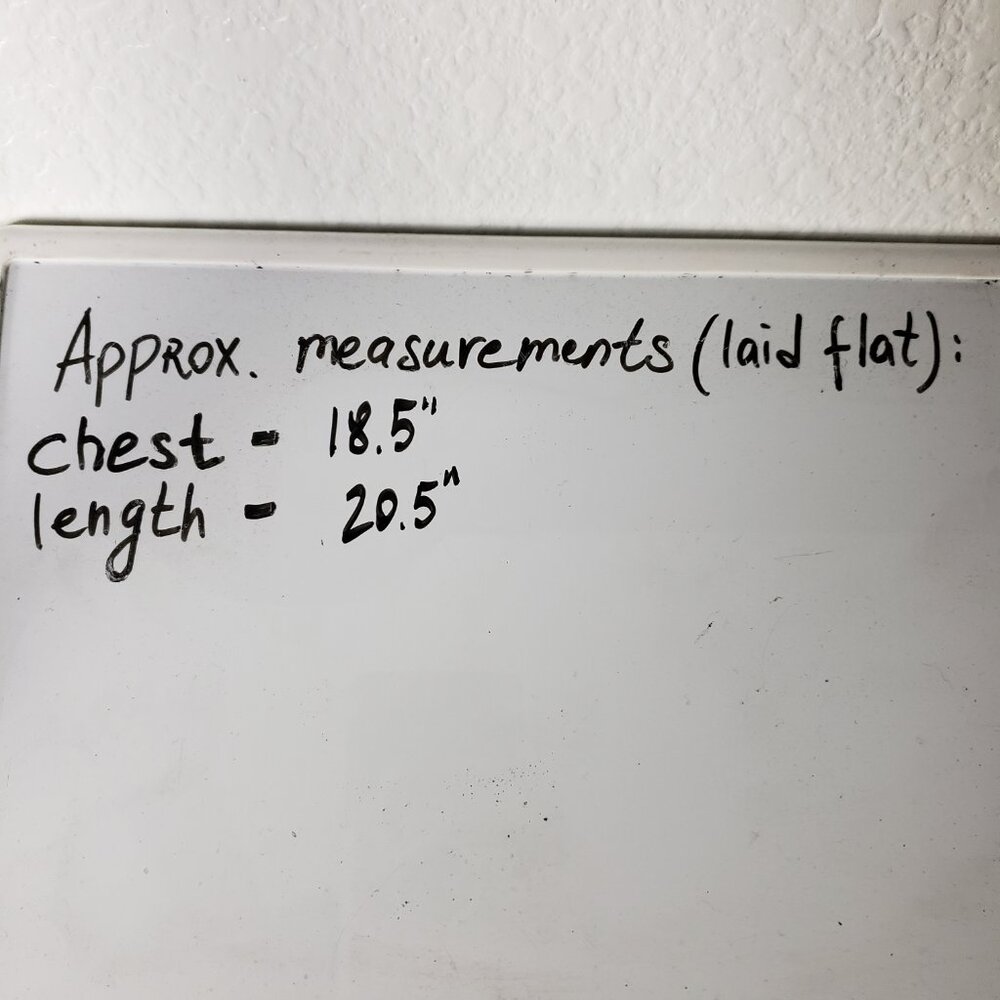 Approx. measurements (laid flat):
chest - 18.5"
length - 20.5"